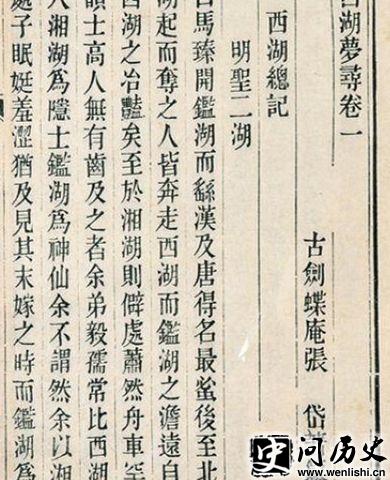 西湖夢尋卷一
古劍蝶庵張 岱
西湖總記
明聖二湖
自馬臻開鑑湖而繇漢及唐得名最蚤後至北
湖起而奪之人皆奔走西湖而鑑湖之澹遠自
西湖之冶豔矣至於湘湖則僻處蕭然舟車罕
韻士高人無有齒及之者余弟毅孺常比西湖
人湘湖爲隱士鑑湖爲神仙余不謂然余以湘
處子眠娗羞澀猶及見其未嫁之時而鑑湖爲
史问历史
www.wenlishi.cn